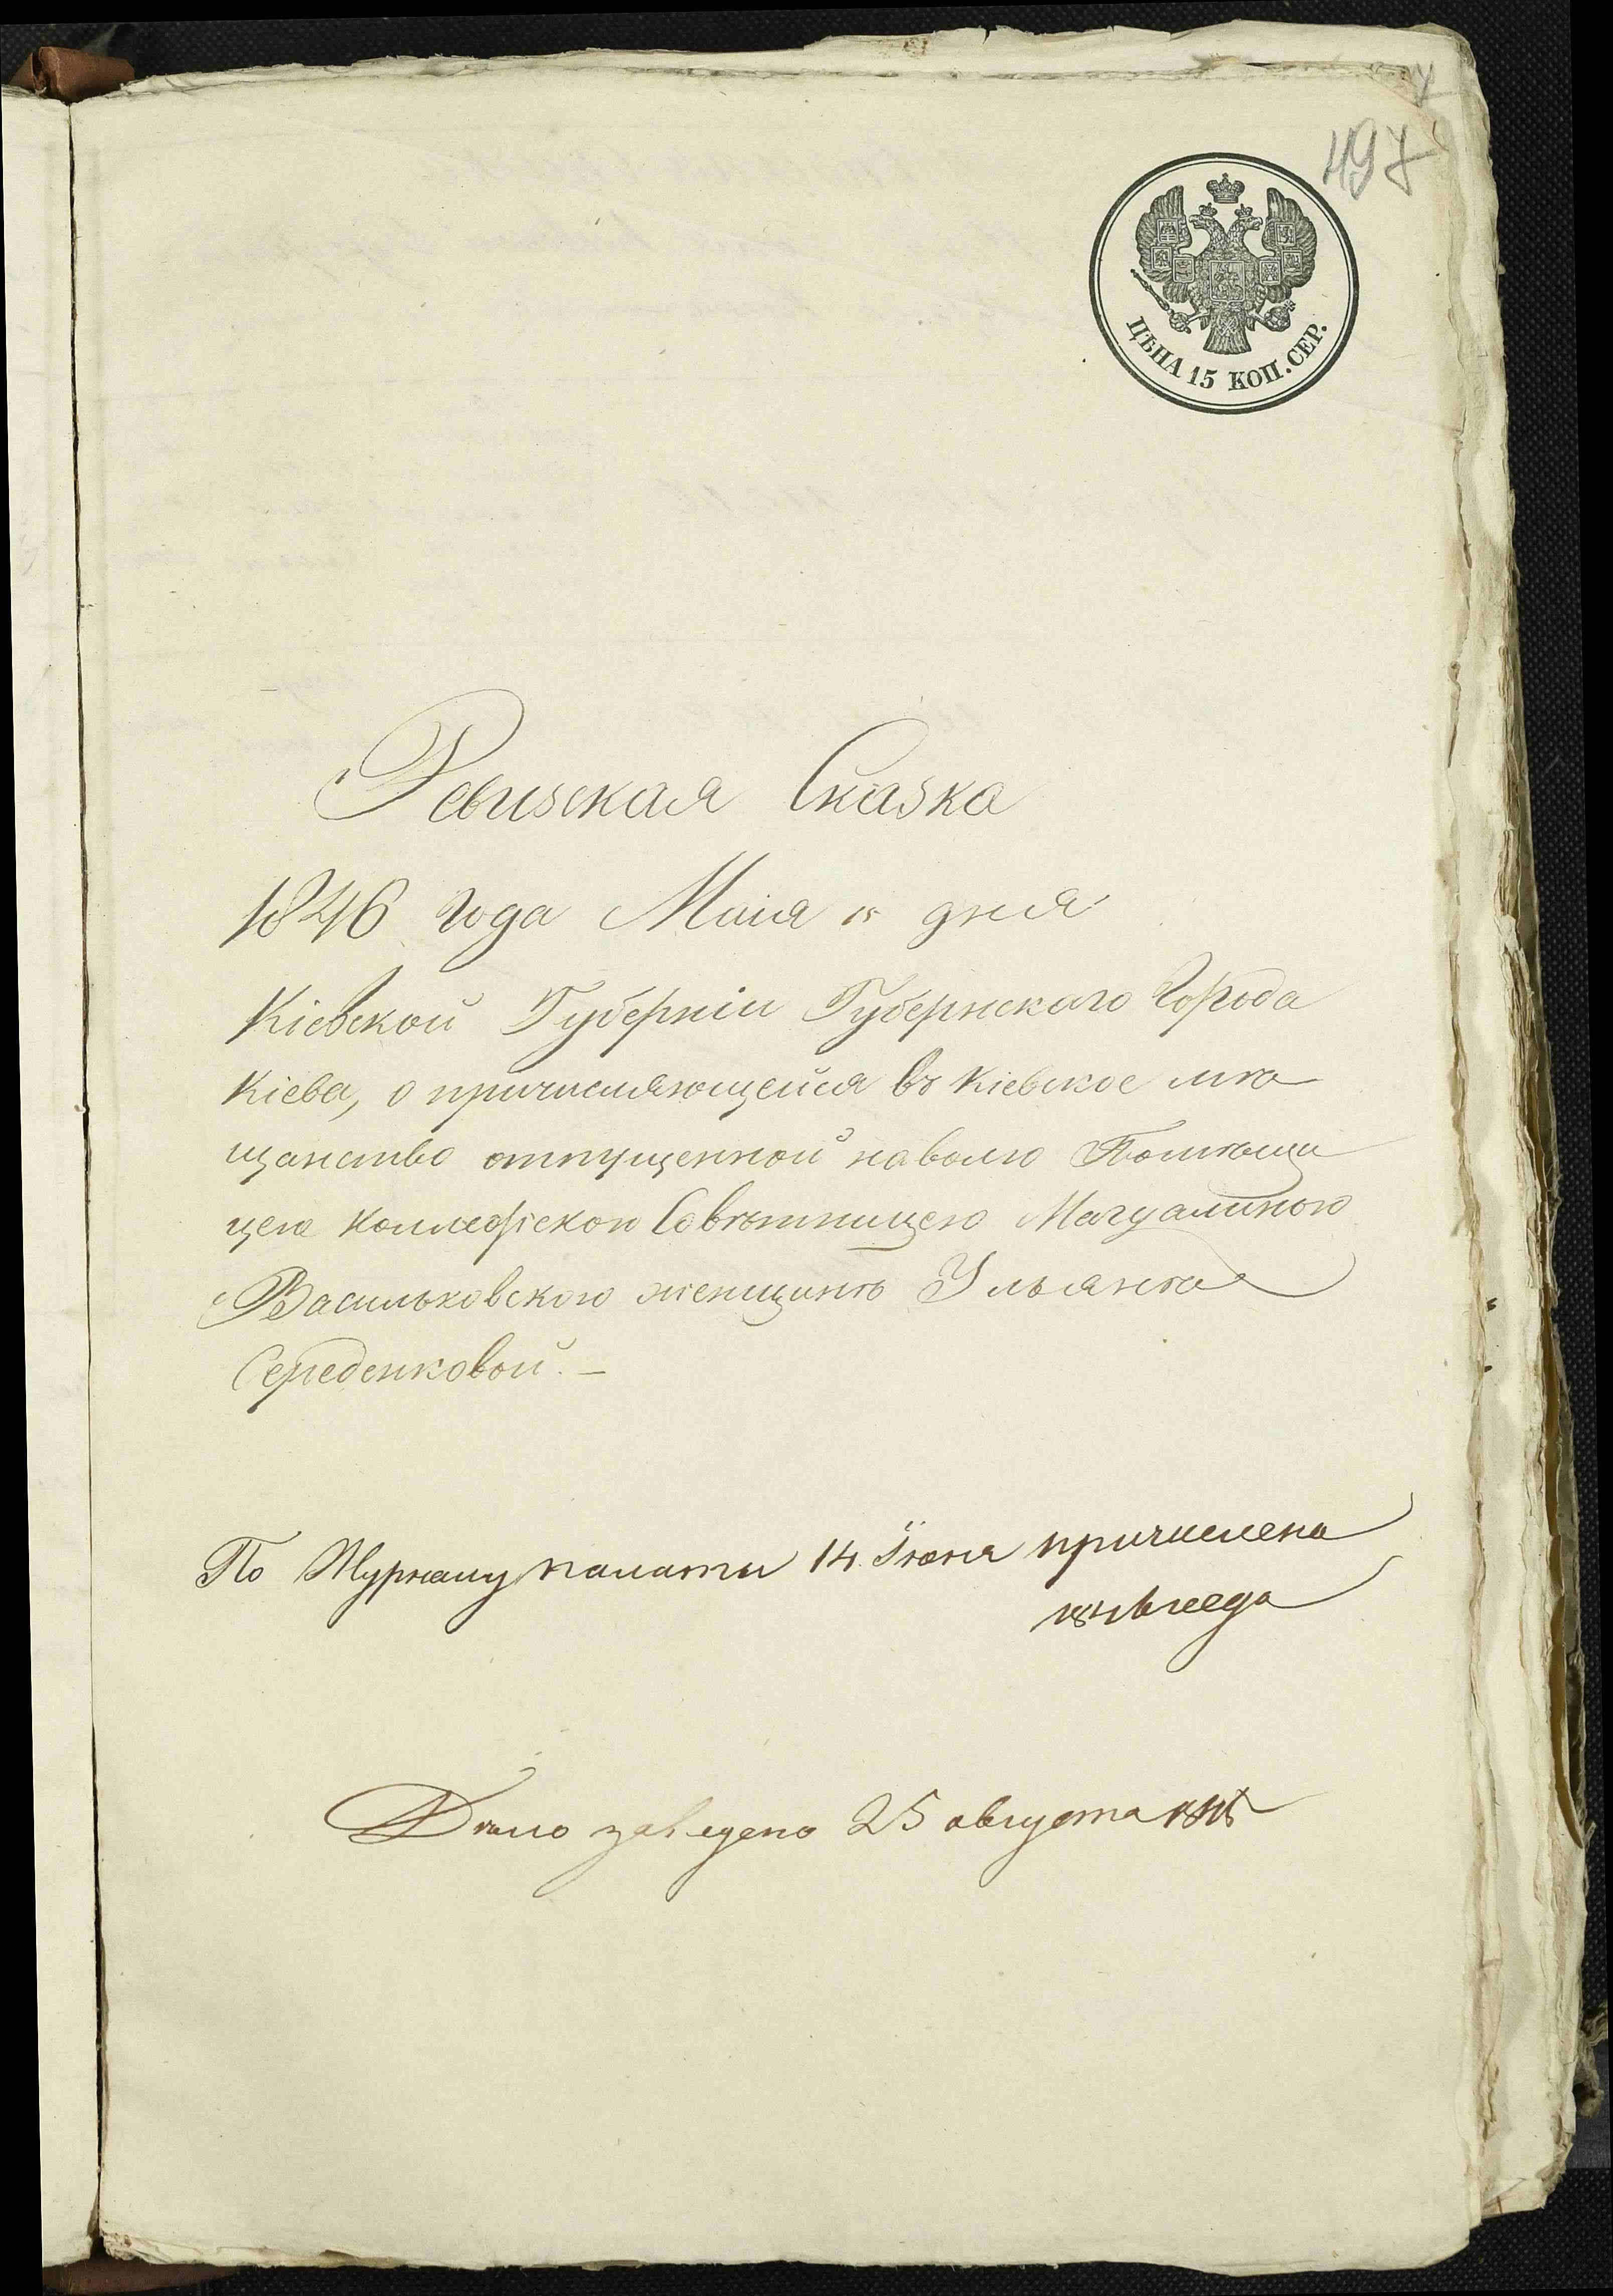 497
ЦѢНА 15 КОП. СЕР.
Ревизская Сказка
1846 года Маія 15 дня
Кіевской Губерніи Губернскаго Города
Кіева, о причисляющейся въ Кіевское мѣ
щанство отпущенной наволю Помѣщи
цею Коллежскою Совѣтницею Магдалиною
Васильковскою женщинѣ Ульянѣ
Середенковой. –
По Журналу палаты 14 Іюня причислена
Дѣло заведено 25 августа